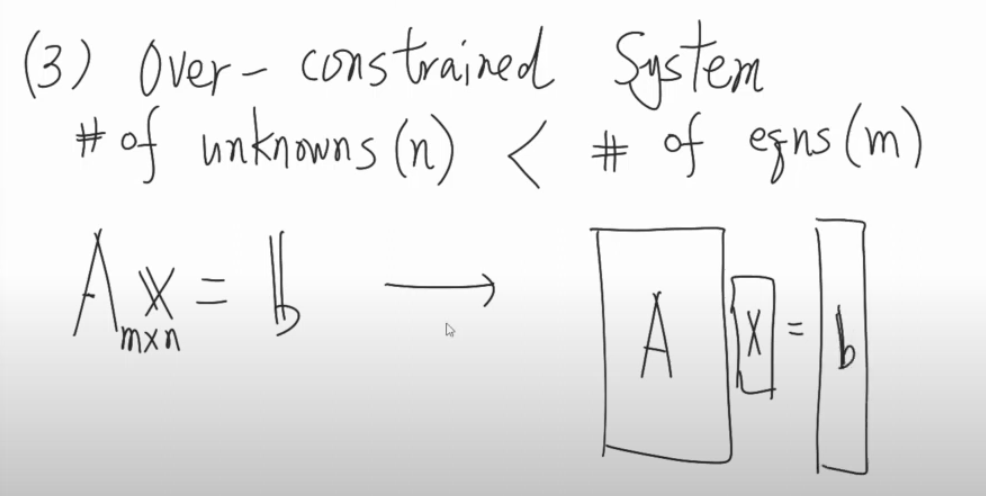 (3) Over-constrained System
# of unknowns (n) < # of eqns (m)
A x = b → A x = b
m×n